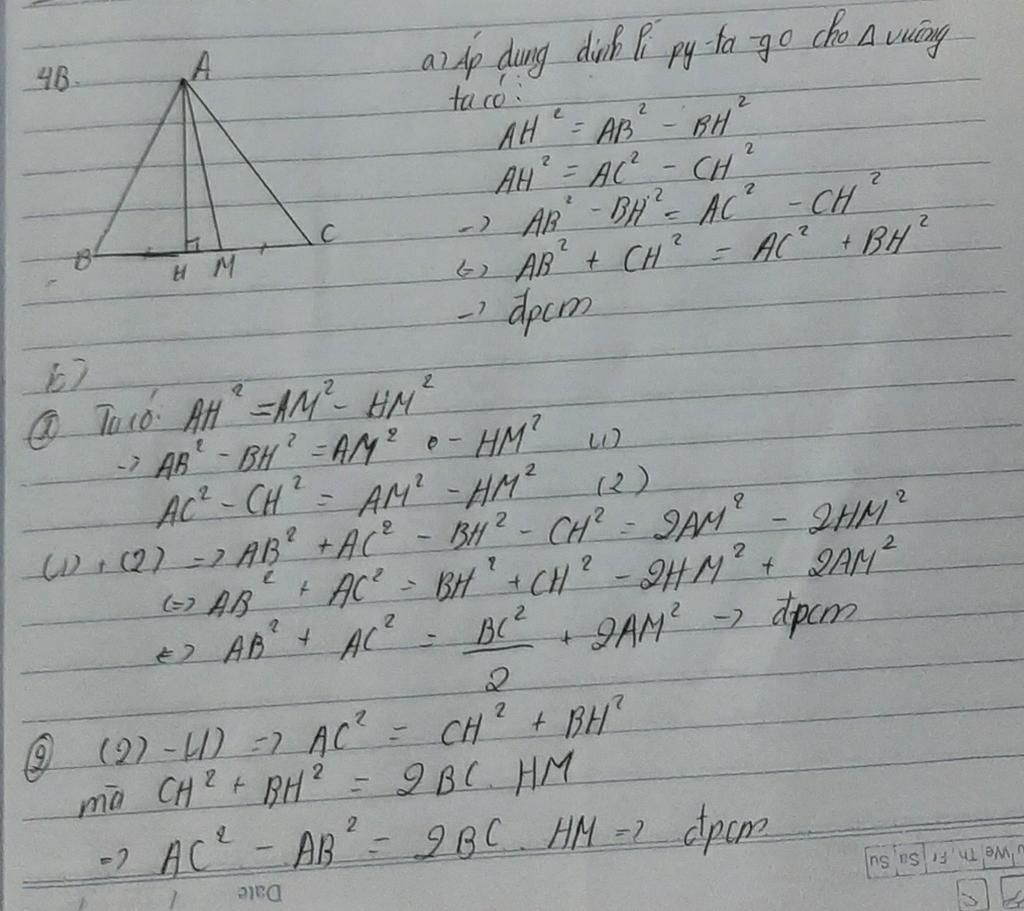 4B.
A
B
H
M
C
a) Áp dụng định lí py-ta-go cho Δ vuông
ta có:
AH² = AB² - BH²
AH² = AC² - CH²
-> AB² - BH² = AC² - CH²
(=) AB² + CH² = AC² + BH²
-> đpcm
b)
① Ta có: AH² = AM² - HM²
-> AB² - BH² = AM² - HM² (1)
AC² - CH² = AM² - HM² (2)
(1) + (2) => AB² + AC² - BH² - CH² = 2AM² - 2HM²
(=> AB² + AC² = BH² + CH² - 2HM² + 2AM²
<=> AB² + AC² = BC²/2 + 2AM² -> đpcm
② (2) - (1) => AC² = CH² + BH²
mà CH² + BH² = 2BC . HM
=> AC² - AB² = 2BC . HM => đpcm
We Th Fr Sa Su
Date